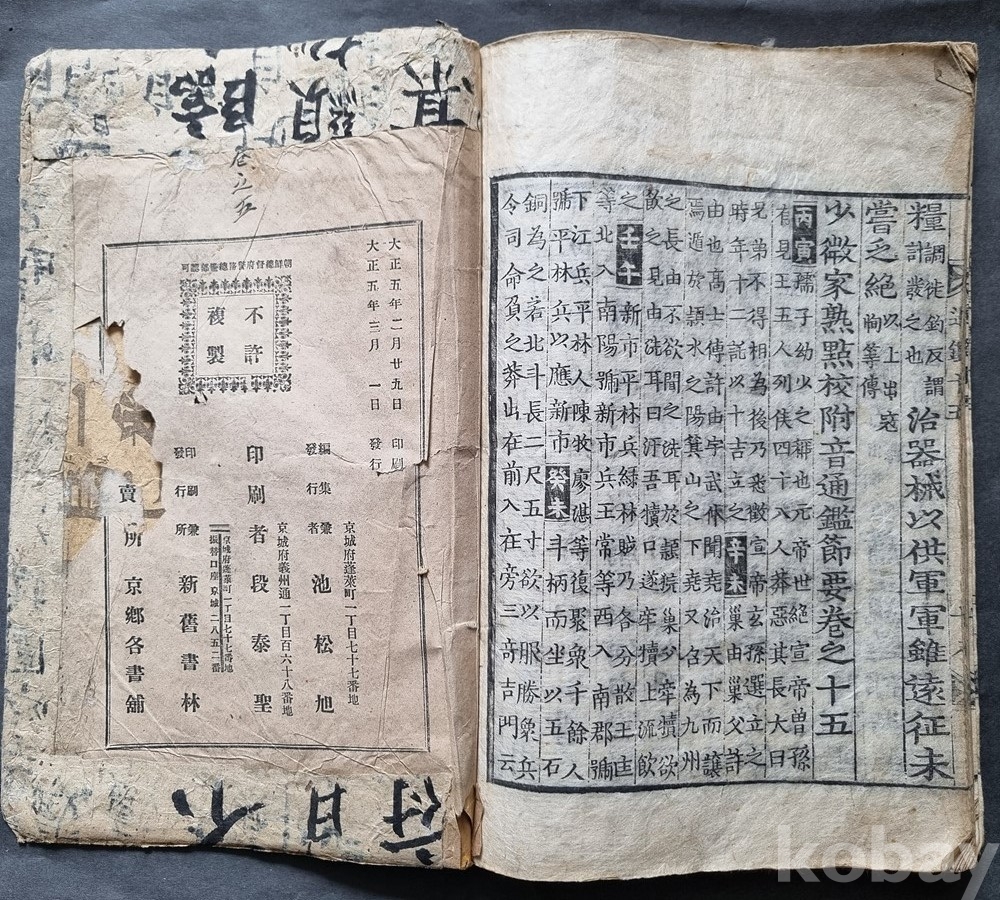 糧調徙鈞反謂計發之也治器械以供軍軍雖遠征未
嘗乏絕以上出寇恂等傳
少微家熟點校附音通鑑節要卷之十五
丙寅孺子幼少之稱也元帝世絕宣帝曾孫
有見王五人列侯四十八人莽惡其長大曰
兄弟不得相為後乃悉徵宣帝玄孫選立之
時年十二託以十吉立之辛未巢由巢父許
由也高士傳許由字武休聞堯治天下而讓
焉遁於頴水之陽箕山之下堯又召為九州
之長由不欲聞之洗耳於頴
歃之見由洗耳曰汙吾犢口遂牽犢上流飲
之壬午新市平林兵綠林賊乃各分散王匡
等北入南陽號新市兵王常等西入南郡號
下江兵平林人陳牧廖湛等復聚衆千餘人
號平林兵以應新市癸未斗柄而坐以五石
銅為之若北斗長二尺五寸欲以服勝衆兵
令司命負之莽出在前入在旁三奇吉門云
大正五年二月廿九日 印刷
大正五年三月 一日 發行
不許
複製
京城府蓬萊町一丁目七十七番地
編集兼發行者 池松旭
京城府義州通一丁目百六十八番地
印刷者 段泰聖
印刷兼發行所 新舊書林
京城府蓬萊町一丁目七十七番地
振替口座京城二八五二番
賣所 京鄉各書舖
kobay